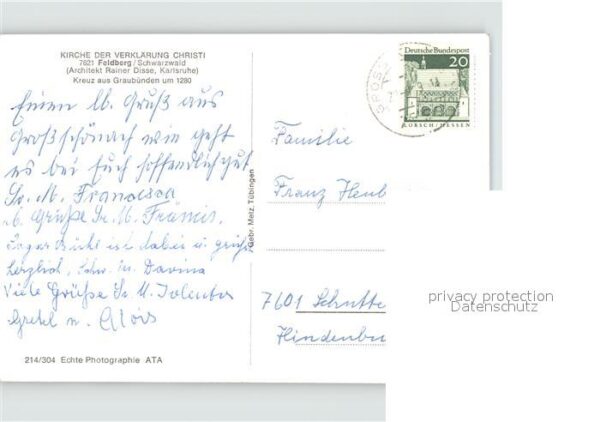 KIRCHE DER VERKLÄRUNG CHRISTI
7821 Feldberg / Schwarzwald
(Architekt Rainer Disse, Karlsruhe)
Kreuz aus Graubünden um 1280
Einen lb. Gruß aus
Großschönach wie geht
es bei Euch hoffendlich gut
Sr. M. Francesca
lb. Grüße Sr. M.
ist dabei u. grüßt
herzlich, Schw. M. Davina
Viele Grüße Sr. M. Jolenta
Gretel u. Alois
214/304 Echte Photographie ATA
Gebr. Metz, Tübingen
Deutsche Bundespost
20
LORSCH/HESSEN
Familie
Franz Heub
7601 Schutte
Hindenbu
privacy protection
Datenschutz